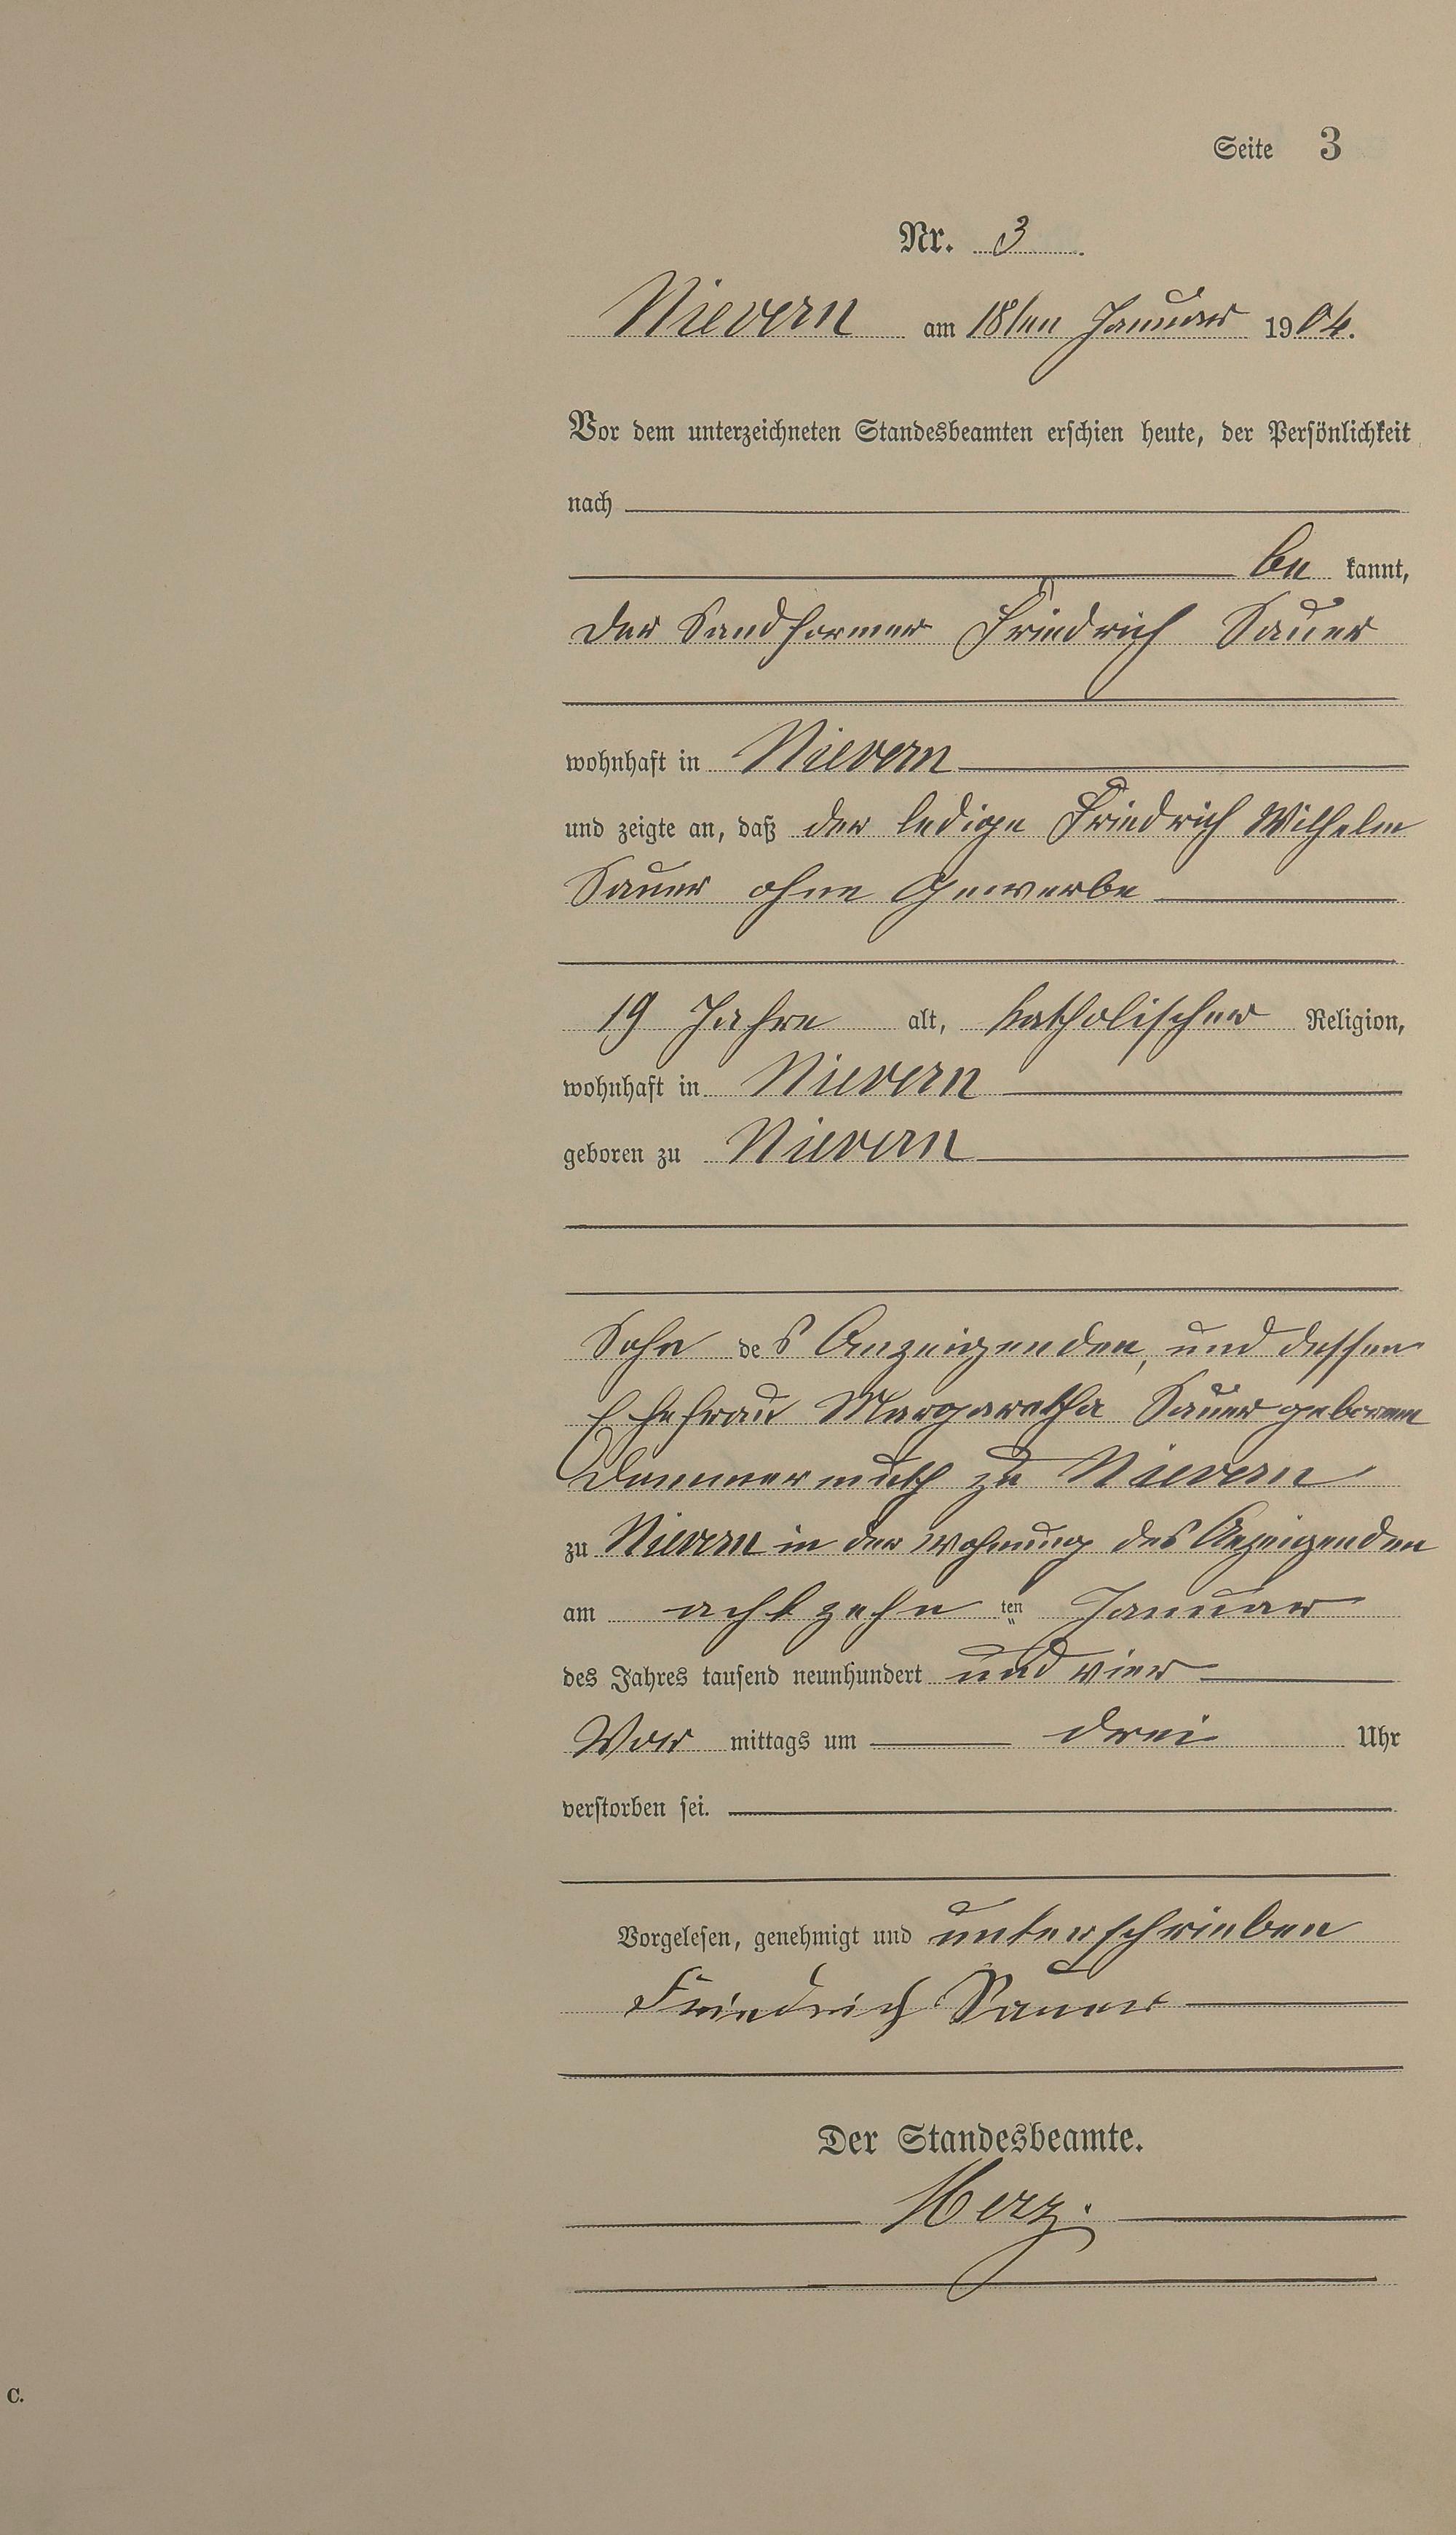 Seite 3
Nr. 3
Nievern am 18ten Januar 1904.
Vor dem unterzeichneten Standesbeamten erschien heute, der Persönlichkeit
nach
be kannt,
der Sandformer Friedrich Sauer
wohnhaft in Nievern
und zeigte an, daß der ledige Friedrich Wilhelm
Sauer ohne Gewerbe
19 Jahre alt, katholischer Religion,
wohnhaft in Nievern
geboren zu Nievern
Sohn des Anzeigenden, und dessen
Ehefrau Margaretha Sauer geborene
Dommermuth zu Nievern
zu Nievern in der Wohnung des Anzeigenden
am achtzehn ten Januar
des Jahres tausend neunhundert und vier
Vor mittags um drei Uhr
verstorben sei.
Vorgelesen, genehmigt und unterschrieben
Friedrich Sauer
Der Standesbeamte.
Herz.
C.